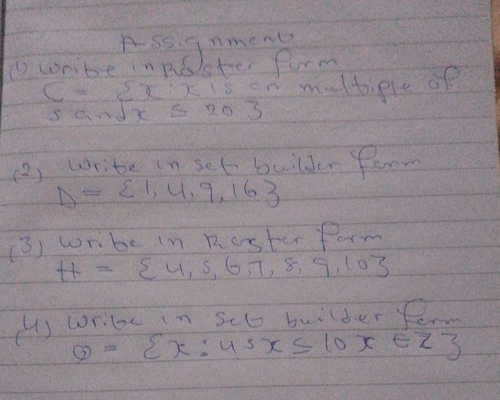 Assignment
(1) Write in Roster form
C = {x : x is an multiple of
5 and x ≤ 20}
(2) Write in set builder form
D = {1, 4, 9, 16}
(3) Write in Roster form
H = {4, 5, 6, 7, 8, 9, 10}
(4) Write in set builder form
= {x : 4 ≤ x ≤ 10 x ∈ Z}